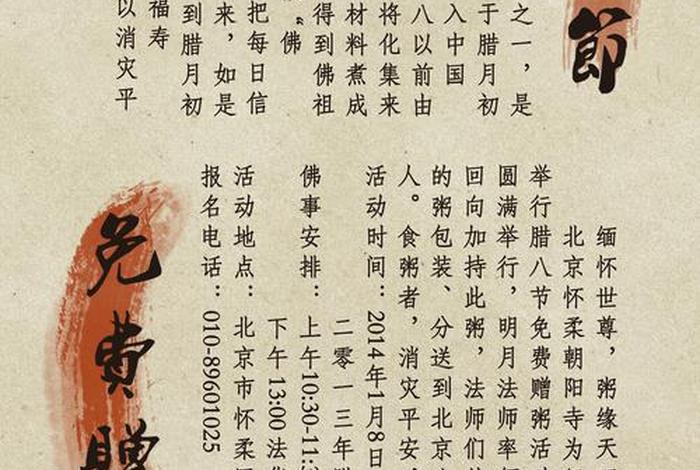 節
之一，是
于腊月初
入中国
八以前由
将化集来
材料煮成
得到佛祖
“佛
把每日信
来，如是
到腊月初
福寿
以消灾平
缅怀世尊，粥缘天
北京怀柔朝阳寺为
举行腊八节免费赠粥活
圆满举行，明月法师率
回向加持此粥，法师们
的粥包装、分送到北京
人。食粥者，消灾平安
活动时间：2014年1月8日
二零一三年
佛事安排：上午10:30-11:
下午13:00法
活动地点：北京市怀柔
报名电话：010-89601025
免費贈